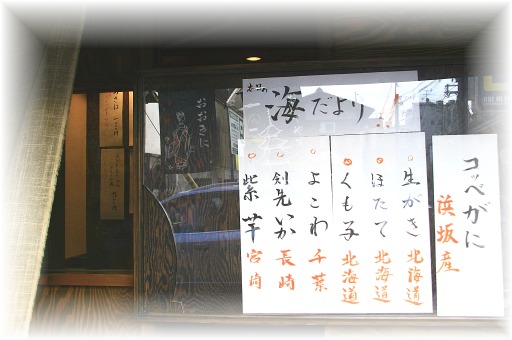 本日の
海だより
コッペがに
浜坂産
生がき 北海道
ほたて 北海道
くも子 北海道
よこわ 千葉
剣先いか 長崎
紫芋 宮崎
おおきに